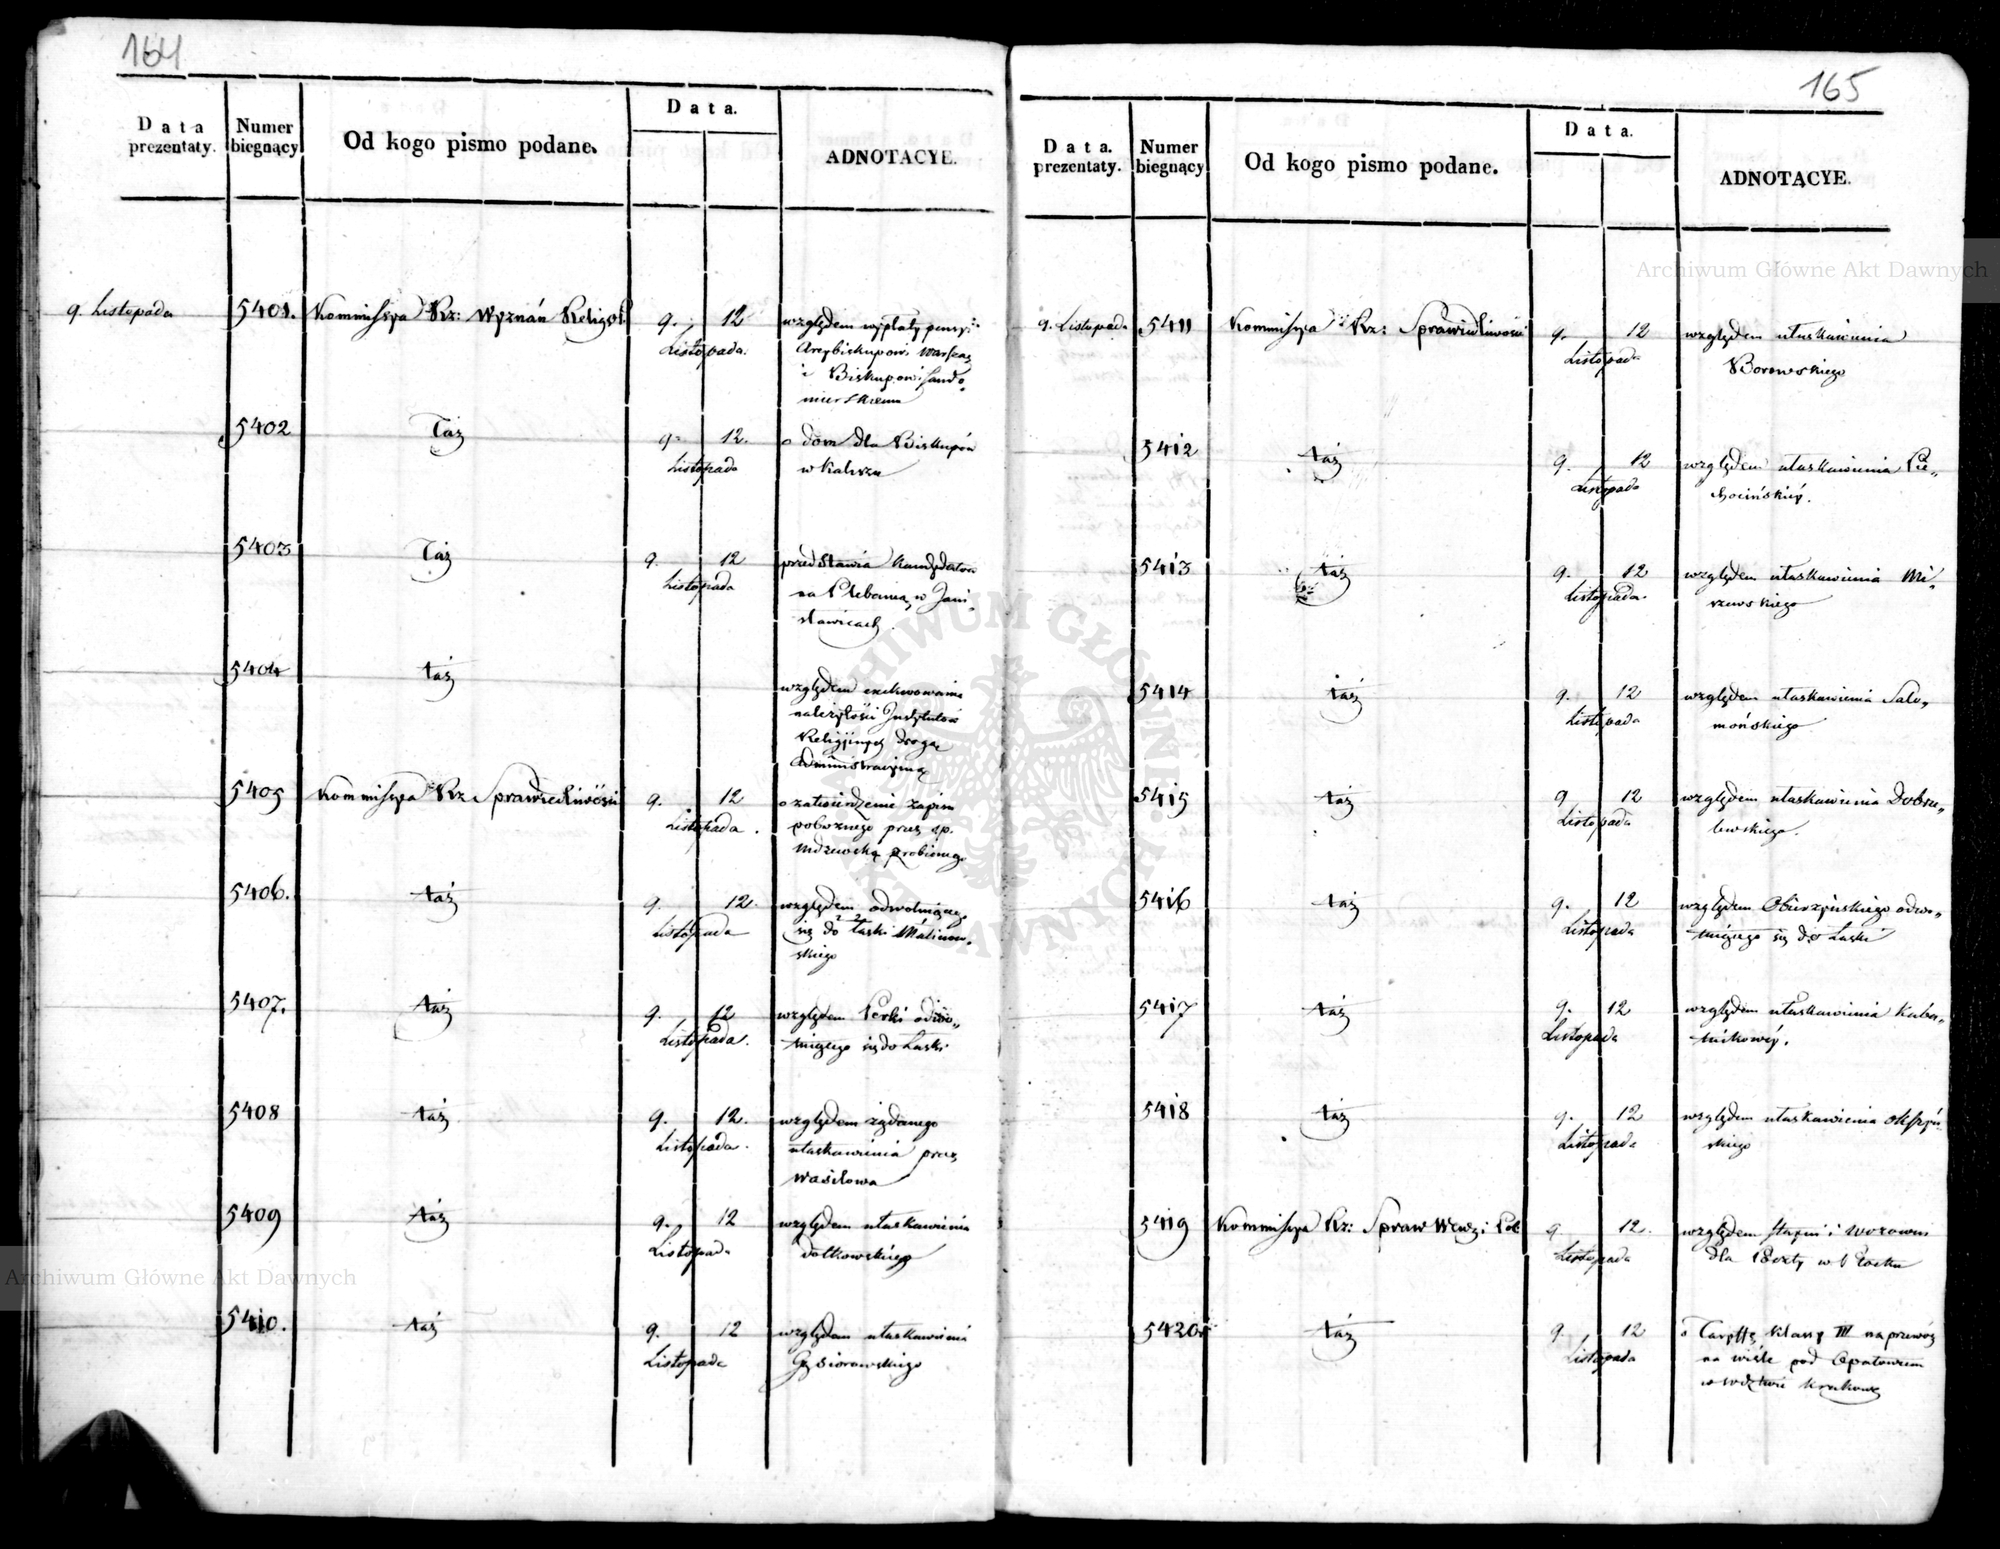 164
Data prezentaty.
Numer biegnący
Od kogo pismo podane.
Data.
ADNOTACYE.
9. Listopada 5401. Kommissya Rz: Wyznań Religij. 9. 12 względem wypłaty pensyi
Listopada. Arcybiskupowi Warsza
i Biskupowi Sando„
mierskiemu
5402 Taż 9 12. o dom dla Biskupów
Listopada w Kaliszu
5403 Taż 9. 12 przedstawia kandydatów
Listopada na Plebanią w Jani„
sławicach.
5404 taż względem exekwowania
należytości Instytutów
Religijnych drogą
administracyjną
5405 Kommissya Rz. Sprawiedliwości 9. 12 o zatwierdzenie zapisu
Listopada. pobożnego przez sp.
zrobionego
5406. taż 9. 12. względem odwołuiącego
Listopada się do łaski Malinow„
skiego
5407. taż 9. 12 względem Perki odwo„
Listopada. łuiącego się do Łaski
5408 taż 9. 12. względem żądanego
Listopada. ułaskawienia przez
Wasilowa
5409 taż 9. 12 względem ułaskawienia
Listopada dołkowskiego
5410. taż 9. 12 względem ułaskawienia
Listopada Gąsiorowskiego
165
Data. prezentaty.
Numer biegnący
Od kogo pismo podane.
Data.
ADNOTACYE.
9. Listopada 5411 Kommissya Rz: Sprawiedliwości 9. 12 względem ułaskawienia
Listopada Borowskiego
5412 taż 9. 12 względem ułaskawienia Cie„
Listopada chocińskiéy.
5413 taż 9. 12 względem ułaskawienia Mi„
Listopada. szewskiego
5414 taż 9. 12 względem ułaskawienia Salo„
Listopada mońskiego
5415 taż 9 12 względem ułaskawienia Dobru„
Listopada lewskiego.
5416 taż 9. 12 względem odwo„
Listopada łuiącego się do Łaski
5417 taż 9. 12 względem ułaskawienia Kuba„
Listopada nikowéy.
5418 taż 9. 12 względem ułaskawienia
Listopada skiego
5419 Kommissya Rz: Spraw Wew: i Pol 9 12. względem stayni i wozowni
Listopada dla Poczty w Płocku
5420 taż 9. 12 o Taryffę Klassy III na przewóz
Listopada na wiśle pod Opatowcem
w wodztwie Krakows
Archiwum Główne Akt Dawnych
Archiwum Główne Akt Dawnych
ARCHIWUM GŁÓWNE AKT DAWNYCH